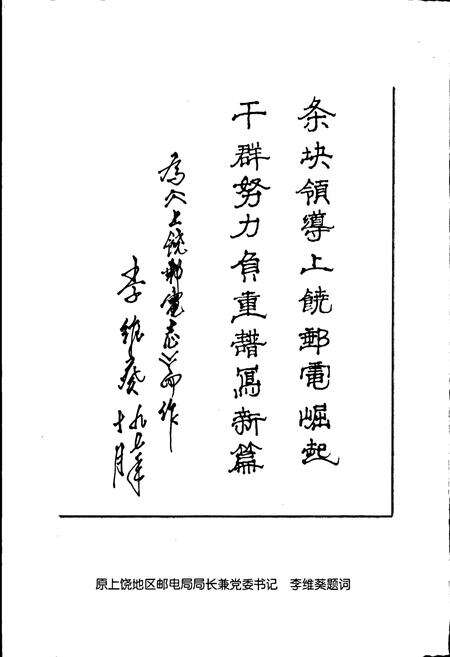 条块领導上饒郵電崛起
干群努力負重譜寫新篇
為《上饒郵電志》而作
李維葵 九五年
十月
原上饶地区邮电局局长兼党委书记 李维葵题词